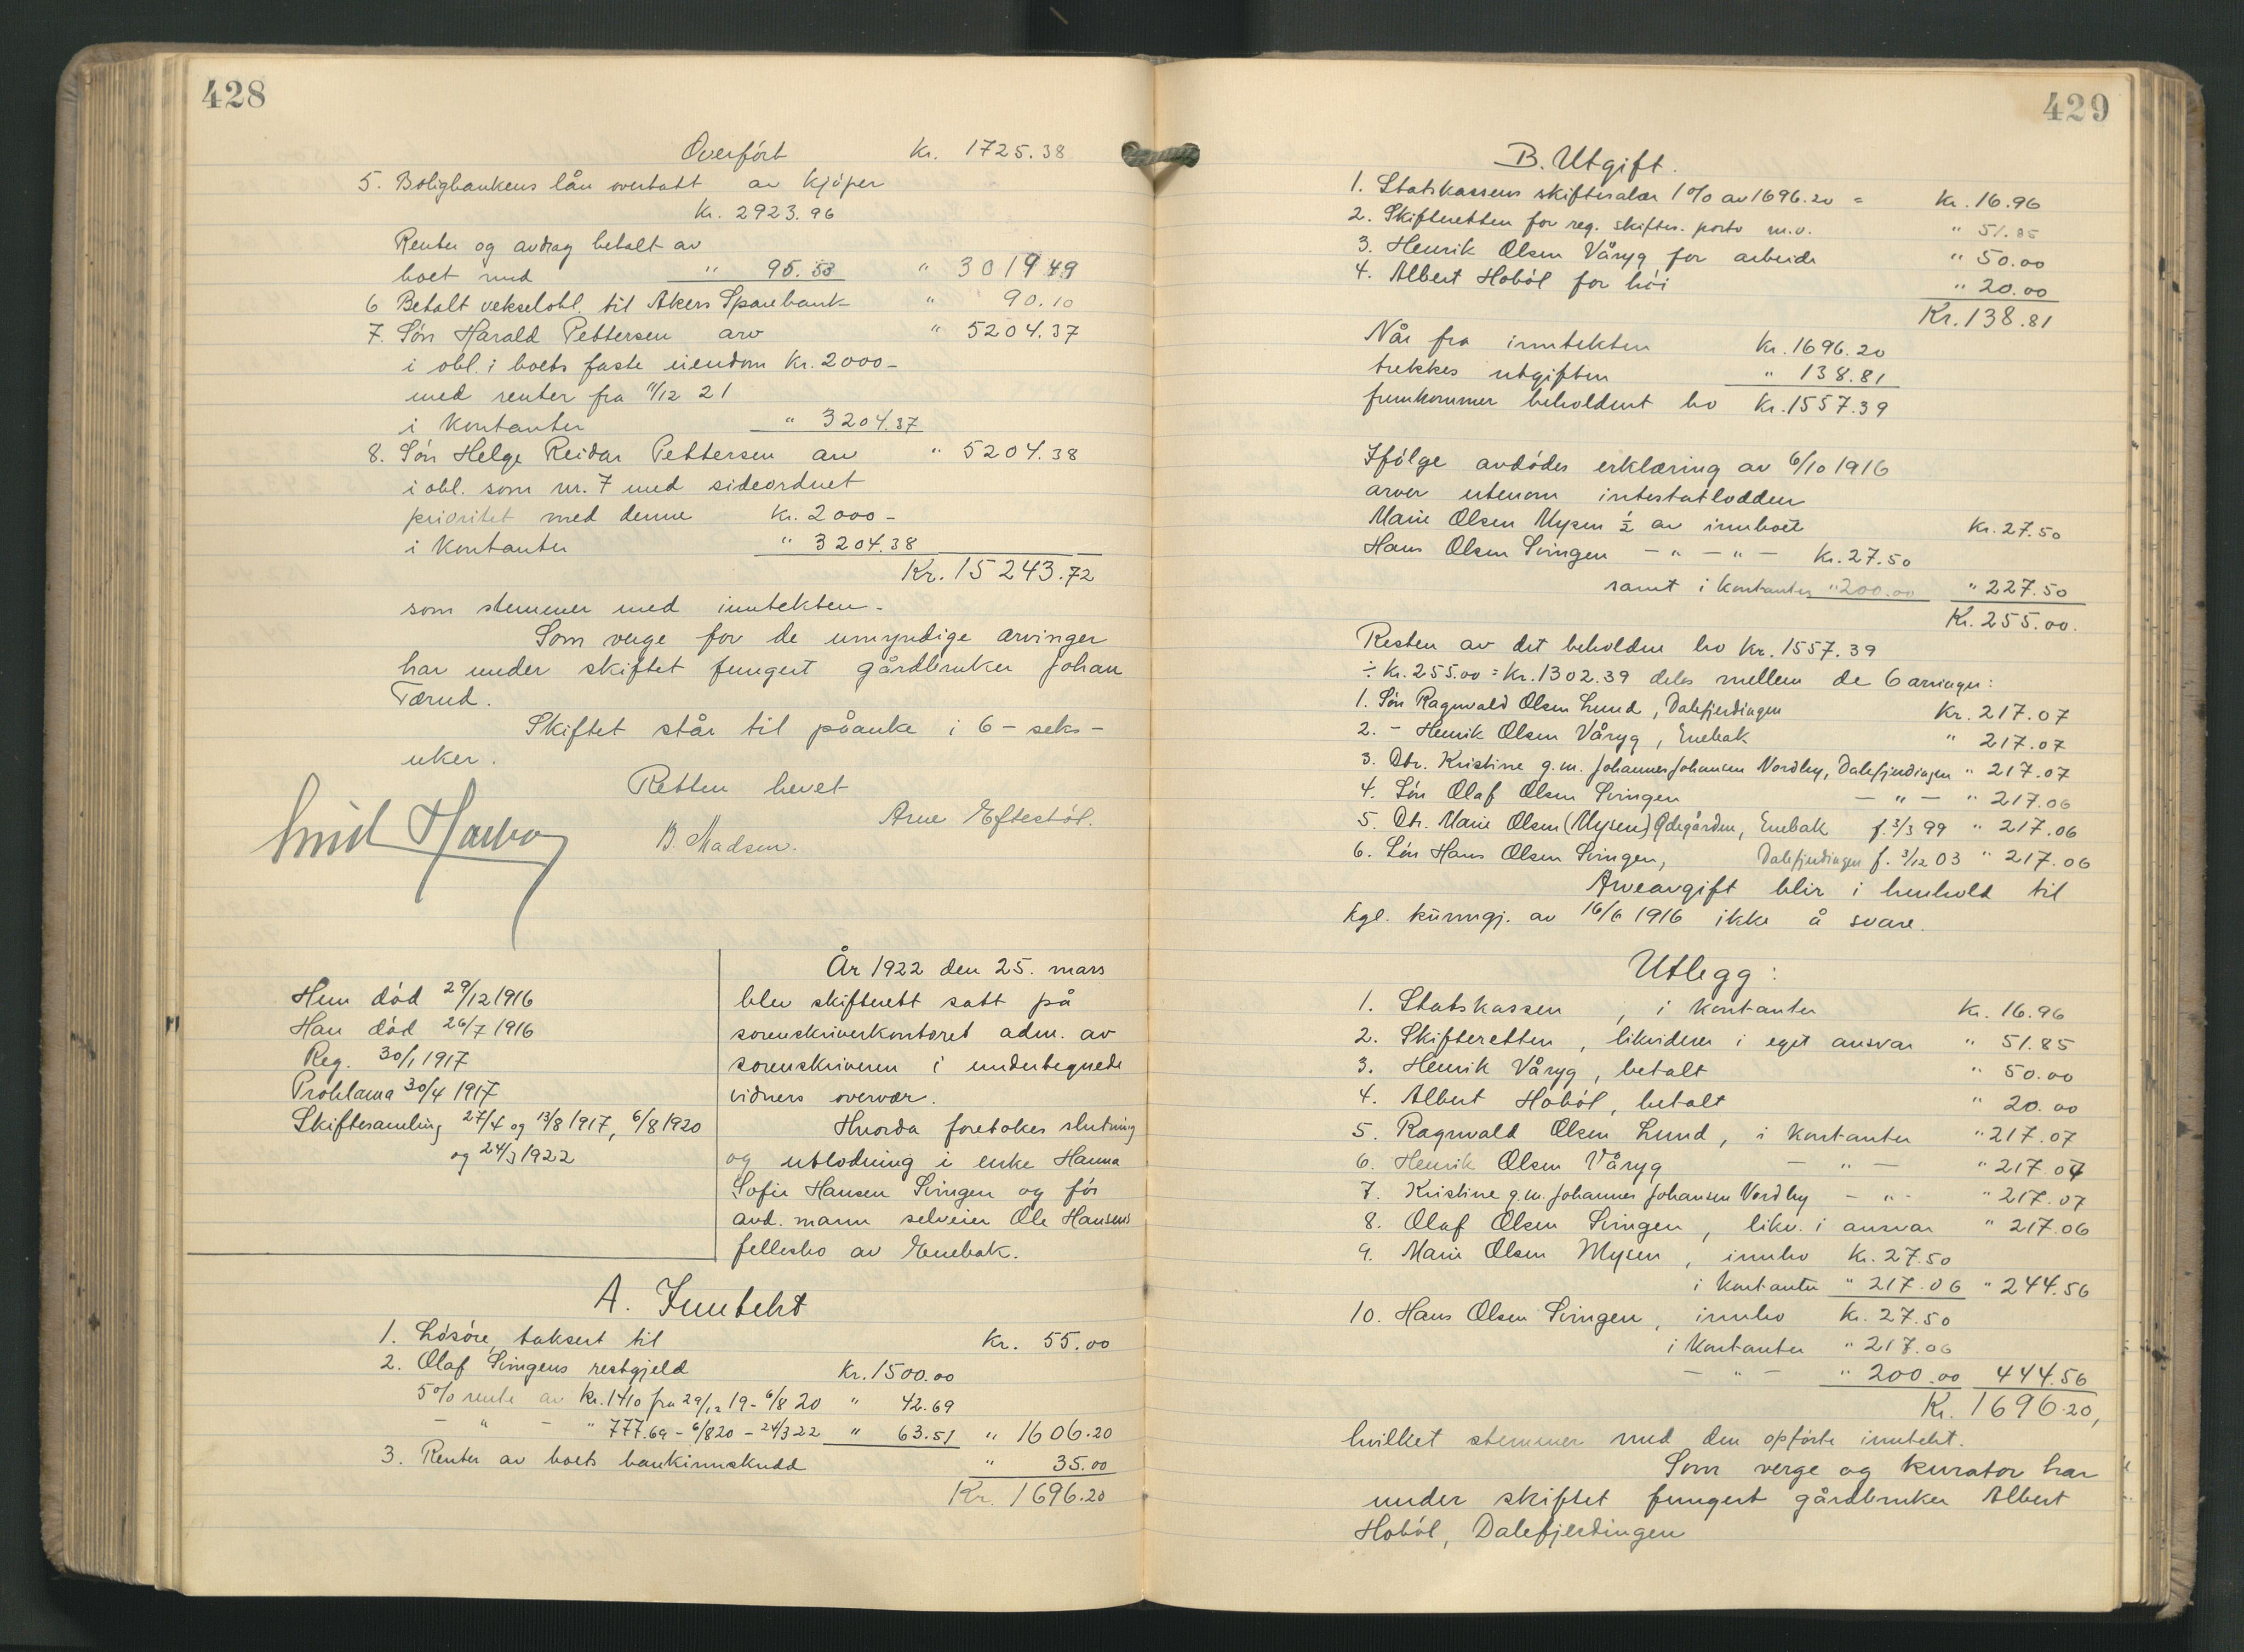 428
Overført Kr. 1725.38
5. Boligbankens lån overtatt av kjøper
Kr. 2923.96
Renter og avdrag betalt av
boet med " 95.53 " 3019.49
6 Betalt vekselobl. til Akers Sparebank " 90.10
7. Søn Harald Pettersen arv " 5204.37
i obl. i boets faste eiendom Kr. 2000-
med renter fra 11/12 21
i kontanter " 3204.37
8. Søn Helge Reidar Pettersen arv " 5204.38
i obl. som nr. 7 med sideordnet
prioritet med denne Kr. 2000-
i kontanter " 3204.38
Kr. 15243.72
som stemmer med inntekten-
Som verge for de umyndige arvinger
har under skiftet fungert gårdbruker Johan
Tærud.
Skiftet står til påanke i 6 - seks -
uker.
Retten hevet
Arne Eftestøl.
B. Madsen.
Hun død 29/12 1916
Han død 26/7 1916
Reg. 30/1 1917
Proklama 30/4 1917
Skiftesamling 27/4 og 13/8 1917, 6/8 1920
og 24/3 1922
År 1922 den 25. mars
blev skifterett satt på
sorenskriverkontoret adm. av
sorenskriveren i undertegnede
vidners overvær.
Hvorda foretokes slutning
og utlodning i enke Hanna
Sofie Hansen Svingen og før
avd. mann selveier Ole Hansens
fellesbo av Enebak.
A. Inntekt
1. Løsøre, taksert til Kr. 55.00
2. Olaf Svingens restgjeld Kr. 1500.00
5% rente av Kr. 1410 fra 29/12 19 - 6/8 20 " 42.69
- " - " 777.69 - 6/8 20 - 24/3 22 " 63.51 " 1606.20
3. Renter av boets bankinnskudd " 35.00
Kr. 1696.20
429
B. Utgift.
1. Statskassens skiftesalær 1% av 1696.20 = Kr. 16.96
2. Skifteretten for reg. skiftes. porto m.v. " 51.85
3. Henrik Olsen Våryg for arbeide " 50.00
4. Albert Hobøl for høi " 20.00
Kr. 138.81
Når fra inntekten Kr. 1696.20
trekkes utgiften " 138.81
fremkommer beholdent bo Kr. 1557.39
Ifølge avdødes erklæring av 6/10 1916
arver utenom intestatlodden
Marie Olsen Mysen ½ av innboet Kr. 27.50
Hans Olsen Svingen - " - " - Kr. 27.50
samt i kontanter " 200.00 " 227.50
Kr. 255.00.
Resten av det beholdne bo Kr. 1557.39
÷ Kr. 255.00 = Kr. 1302.39 deles mellem de 6 arvinger:
1. Søn Ragnvald Olsen Lund, Dalefjerdingen Kr. 217.07
2. - Henrik Olsen Våryg, Enebak " 217.07
3. Dtr. Kristine g.m. Johannes Johansen Nordby, Dalefjerdingen " 217.07
4. Søn Olaf Olsen Svingen - " - " 217.06
5. Dtr. Marie Olsen (Mysen) Ødegården, Enebak f. 3/3 99 " 217.06
6. Søn Hans Olsen Svingen, Dalefjerdingen f. 3/12 03 " 217.06
Arveavgift blir i henhold til
kgl. kunngj. av 16/6 1916 ikke å svare.
Utlegg:
1. Statskassen, i kontanter Kr. 16.96
2. Skifteretten, likviderer i eget ansvar " 51.85
3. Henrik Våryg, betalt " 50.00
4. Albert Hobøl, betalt " 20.00
5. Ragnvald Olsen Lund, i kontanter " 217.07
6. Henrik Olsen Våryg - " - " 217.07
7. Kristine g.m. Johannes Johansen Nordby - " - " 217.07
8. Olaf Olsen Svingen, likv. i ansvar " 217.06
9. Marie Olsen Mysen, innbo Kr. 27.50
i kontanter " 217.06 " 244.56
10. Hans Olsen Svingen, innbo Kr. 27.50
i kontanter " 217.06
- " - " 200.00 444.56
Kr. 1696.20,
hvilket stemmer med den opførte inntekt.
Som verge og kurator har
under skiftet fungert gårdbruker Albert
Hobøl, Dalefjerdingen